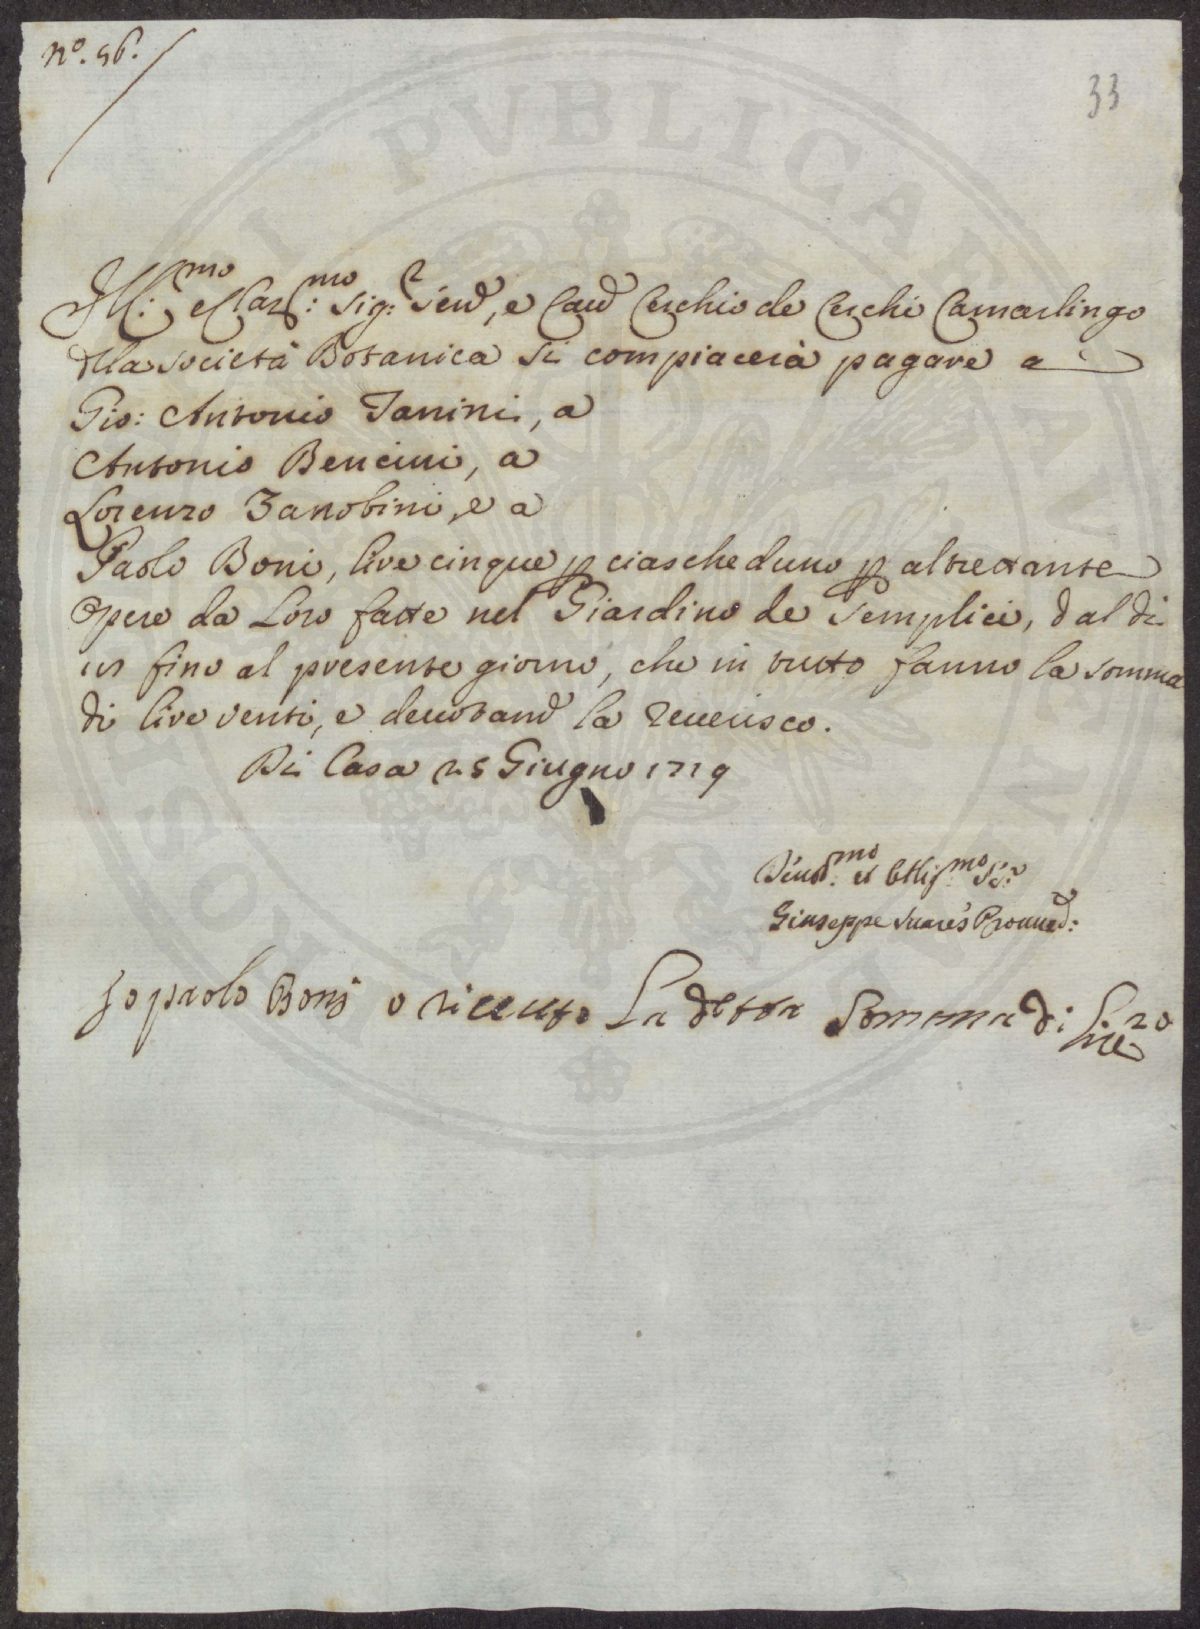 N.º 56.
33
Ill:mo e Clar:mo Sig:r Send, e Cavd Cerchio de Cerchi Camarlingo
della Società Botanica si compiacerà pagare a
Gio: Antonio Janini, a
Antonio Bencini, a
Lorenzo Zanobini, e a
Paolo Boni, lire cinque p ciascheduno p altrettante
Opere da Loro fatte nel Giardino de Semplici, dal di
fino al presente giorno, che in tutto fanno la somma
di lire venti, e devotand la reverisco.
Di Casa 25 Giugno 1719
Devod.mo et Obblig.mo Se:r
Giuseppe Suares Provved:
Io paolo Boni o riceuto La detta Somma di Lire 20
PVBLICAE